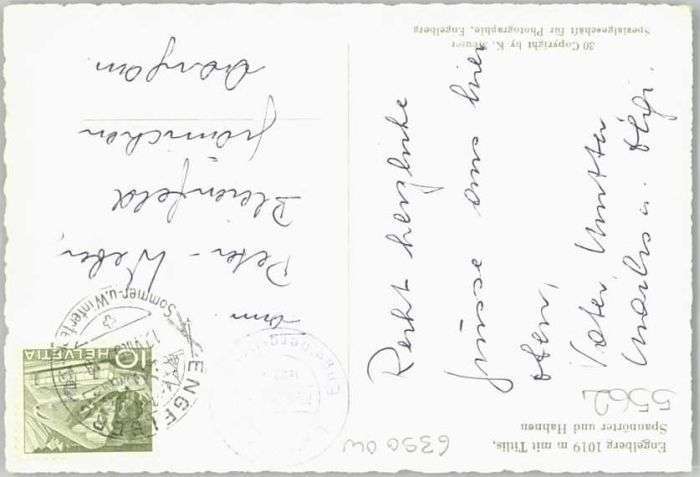 Engelberg 1019 m mit Titlis,
Spannörter und Hahnen
30 Copyright by K. Meuser
Spezialgeschäft für Photographie, Engelberg
Recht herzliche
Grüsse aus hier
oben,
Vater, Mutter
Markus u. Helgi.
Fam.
Peter - Weber
Bleienfeld
Gränichen
Aargau
HELVETIA
10
ENGELBERG
Sommer- u. Winter
Engelberg
5562
6390 OW